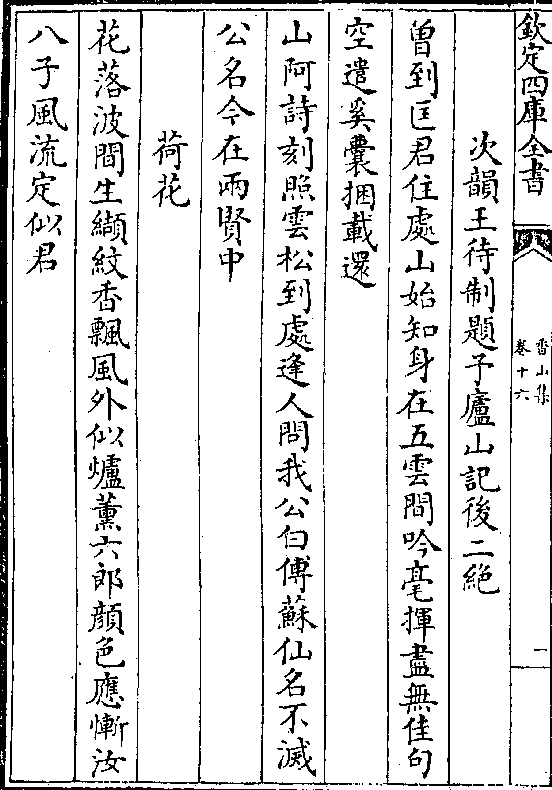 欽定四庫全書
香山集
卷十六
一
次韻王待制題予廬山記後二絶
曽到匡君住處山始知身在五雲間吟毫揮盡無佳句
空遣奚囊捆載還
山阿詩刻照雲松到處逢人問我公白傅蘇仙名不滅
公名今在兩賢中
荷花
花落波間生纈紋香飄風外似爐薰六郎顔色應慚汝
八子風流定似君